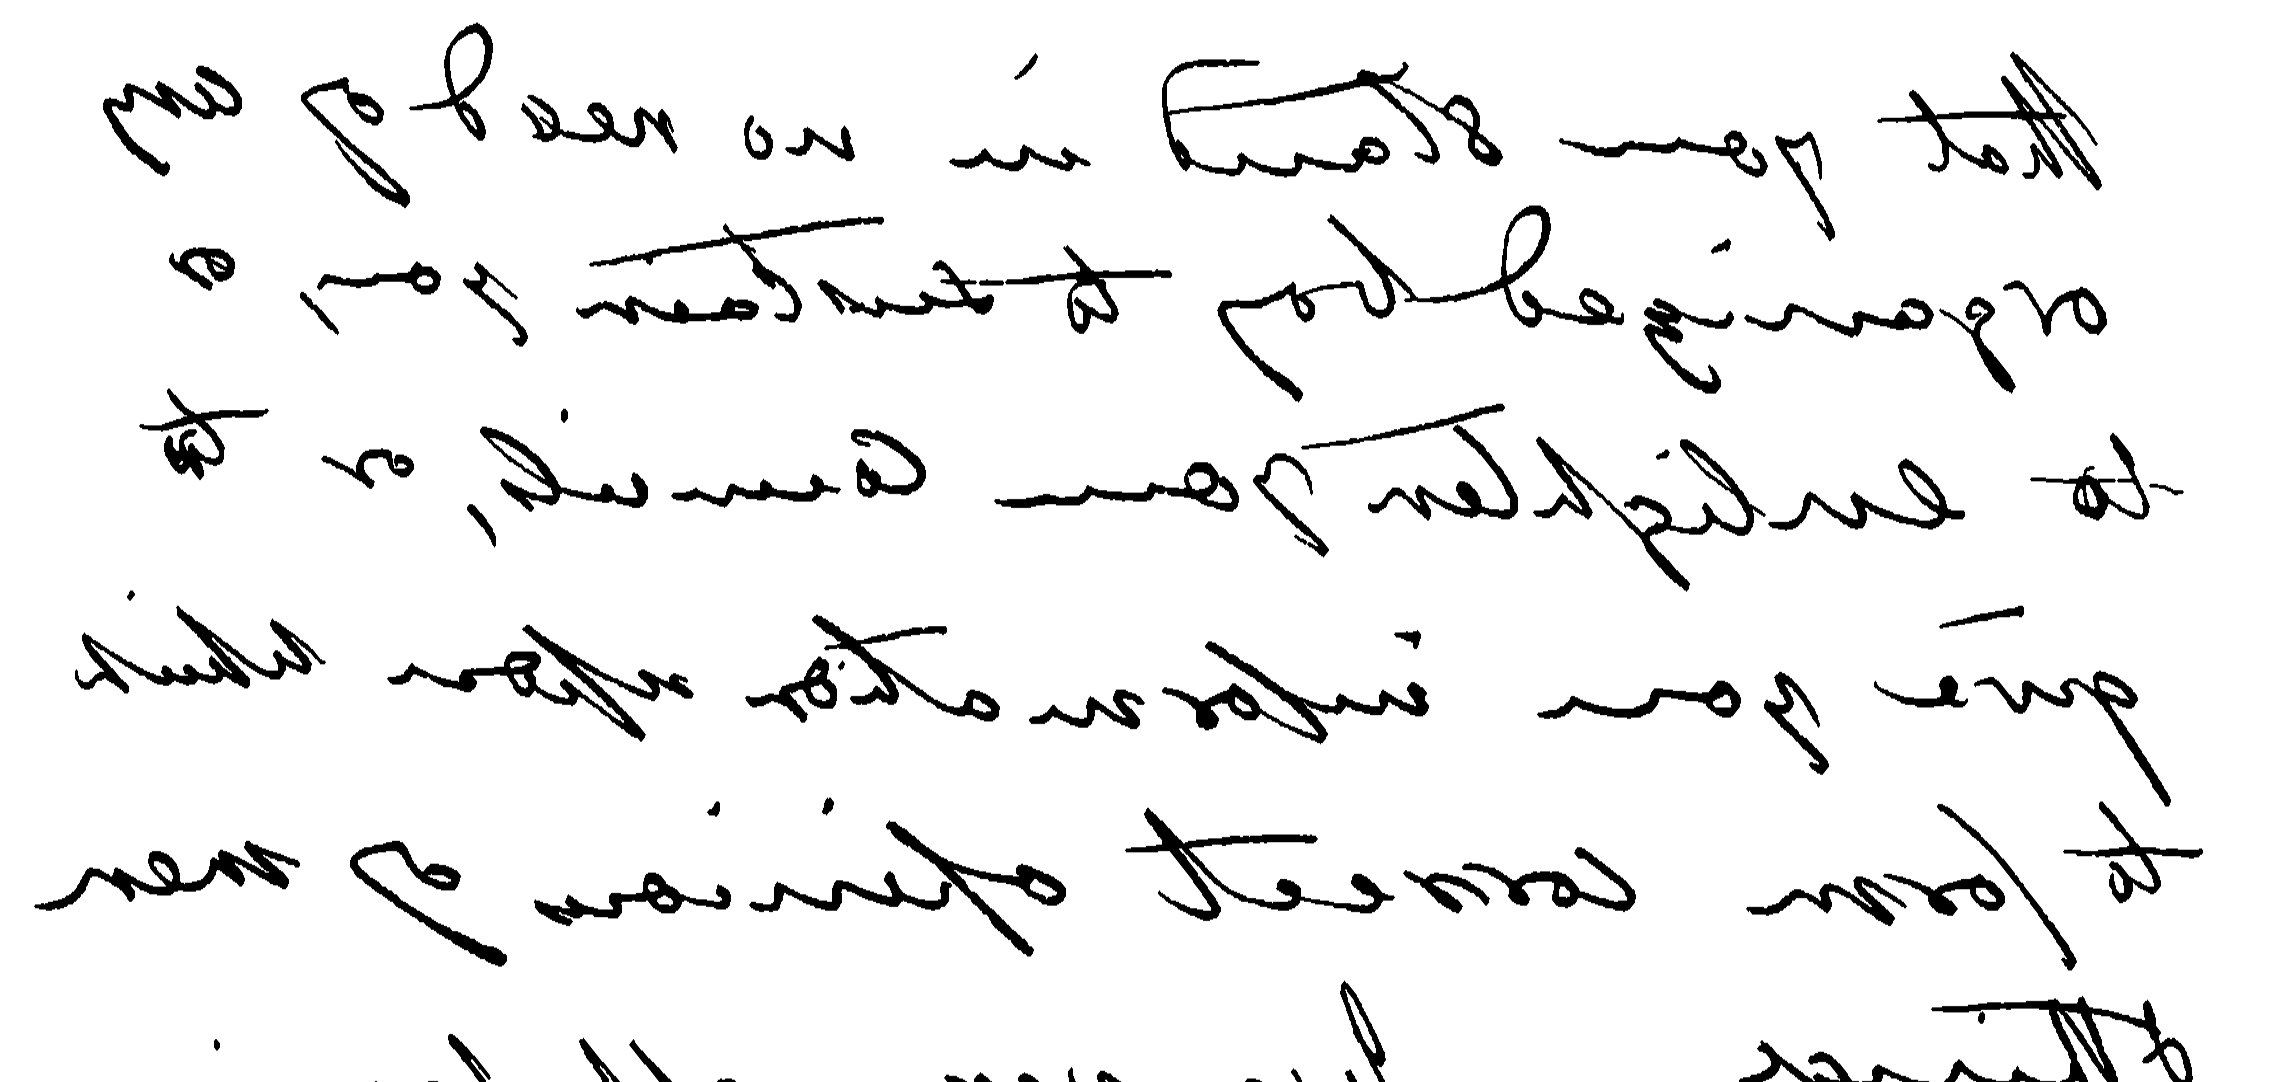 that you stand in no need of any
organized body to you, or
to enlighten your council, or to
give you information upon which
to form correct opinions of men